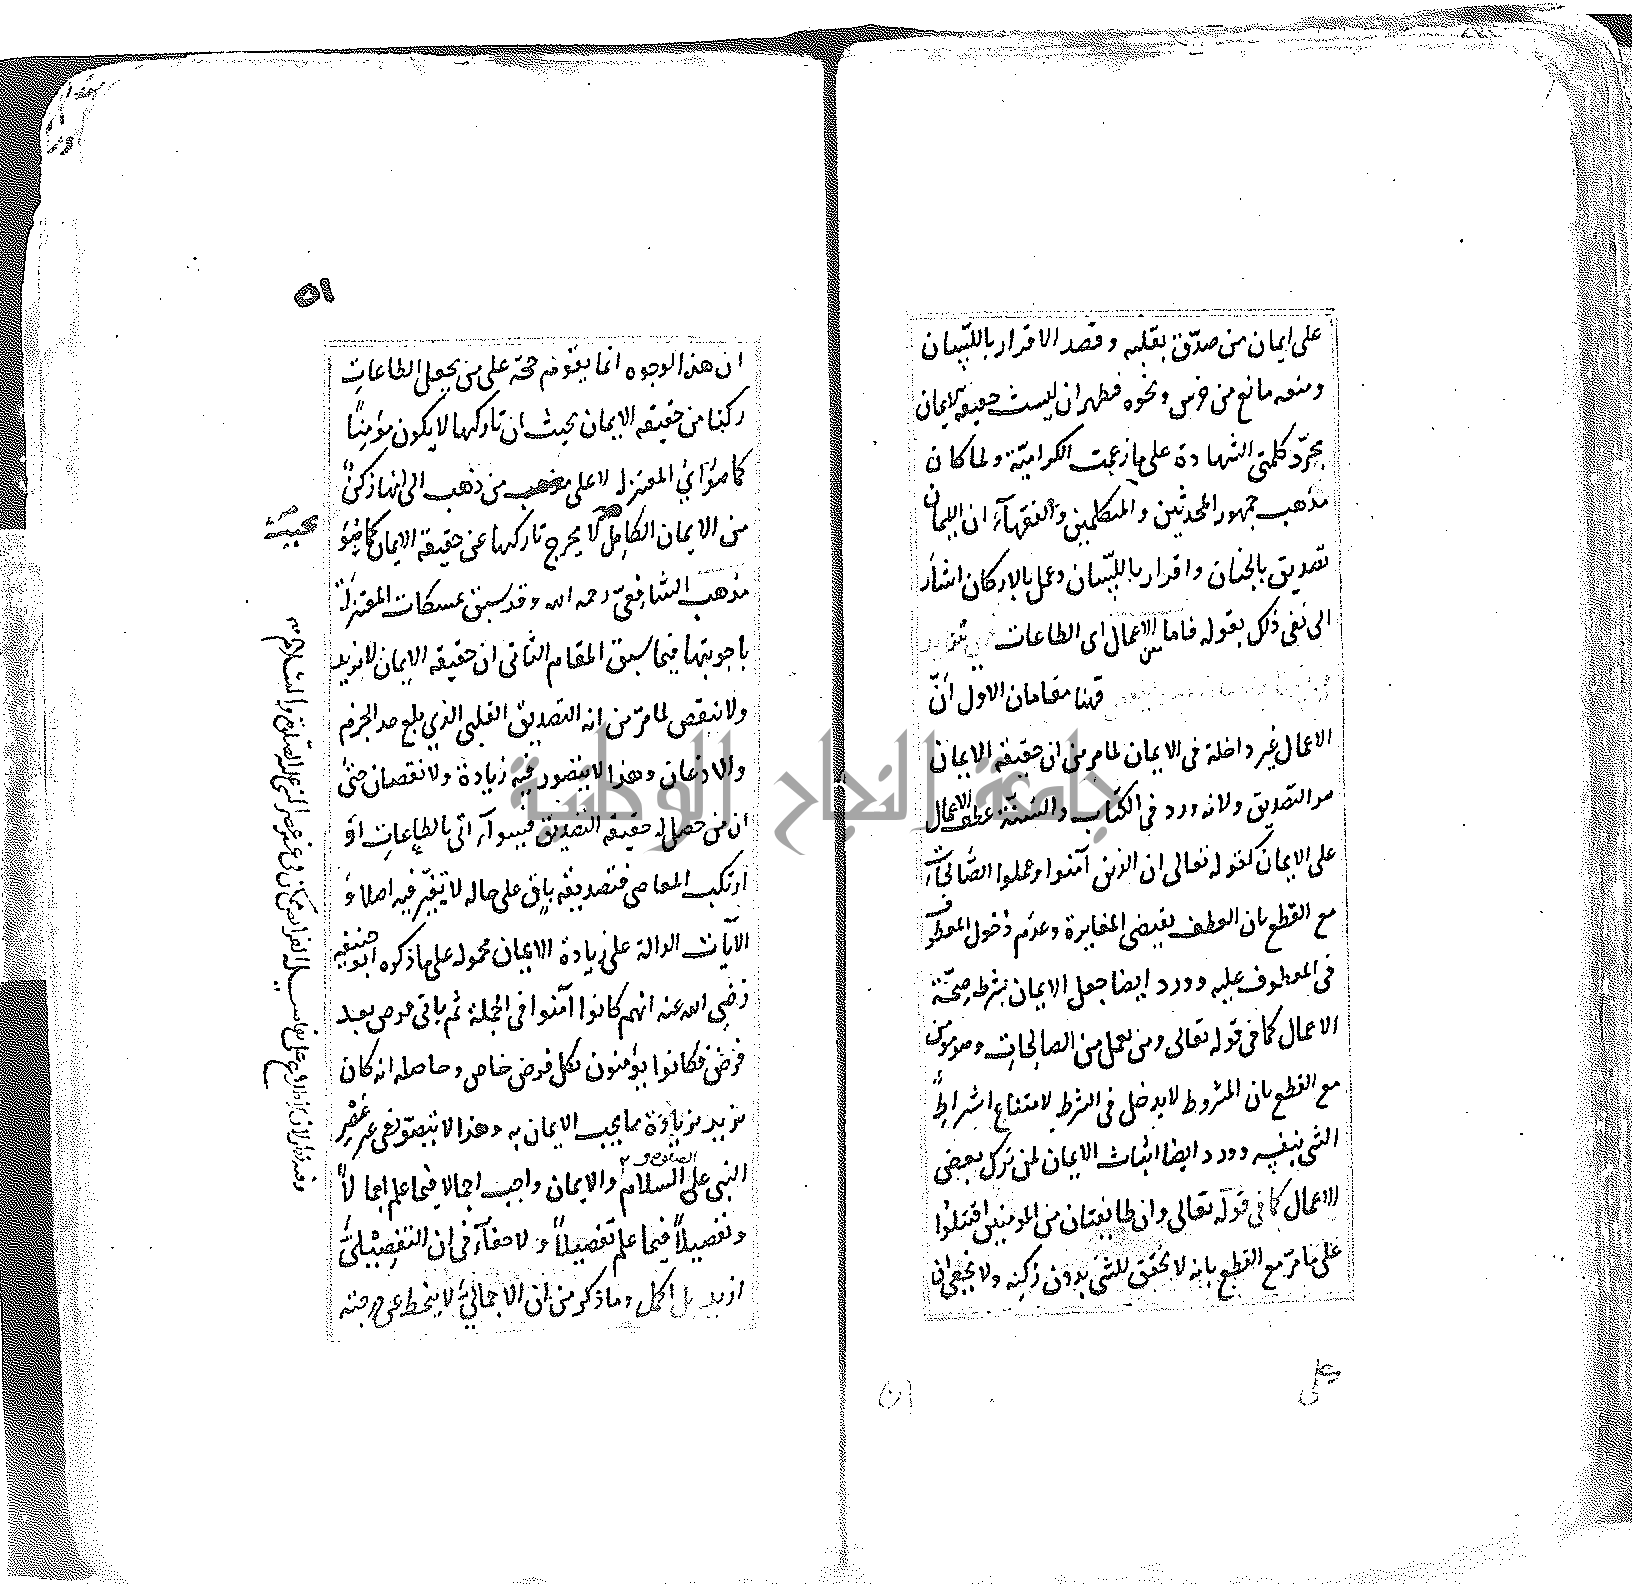 على ايمان من صدّق بقلبه وقصد الاقرار باللّسان
ومنعه مانع من خرس ونحوه فظهر ان ليست حقيقة الايمان
بمجرّد كلمتى الشهادة على ما زعمت الكراميّة ولما كان
مذهب جمهور المحدثين والمتكلمين والفقهآء ان الايمان
تصديق بالجنان واقرار باللّسان وعمل بالاركان اشار
الى نفى ذلك بقوله فاما الاعمال اى الطاعات
فهنا مقامان الاول أنّ
الاعمال غير داخلة فى الايمان لما مر من ان حقيقة الايمان
هو التصديق ولانه ورد فى الكتاب والسّنّة عطف الاعمال
على الايمان كقوله تعالى ان الذين آمنوا وعملوا الصّالحات
مع القطع بان العطف يقتضى المغايرة وعدم دخول المعطوف
فى المعطوف عليه وورد ايضا جعل الايمان شرط صحّة
الاعمال كما فى قوله تعالى ومن يعمل من الصالحات وهو مومن
مع القطع بان المشروط لا يدخل فى الشرط لامتناع اشتراط
الشئ بنفسه وورد ايضا اثبات الايمان لمن ترك بعض
الاعمال كما فى قوله تعالى وان طايفتان من المومنين اقتتلوا
على ما مرّ مع القطع بانه لا تحقق للشئ بدون ركنه ولا يخفى ان
على
٥١
ان هذه الوجوه انما يقوم حجة على من يجعل الطاعات
ركنا من حقيقة الايمان بحيث ان تاركها لا يكون مؤمنًا
كما هو رأي المعتزلة لا على مذهب من ذهب الى انها ركنٌ
من الايمان الكامل لا يخرج تاركها عن حقيقة الايمان كما هو
مذهب الشافعىّ رحمه الله وقد سبق تمسكات المعتزلة
باجوبتها فيما سبق المقام الثانى ان حقيقة الايمان لا تزيد
ولا تنقص لما مرّ من انه التصديق القلبى الذي بلغ حد الجزم
والاذعان وهذا لا يتصور فيه زيادة ولا نقصان حتّى
ان من حصل له حقيقة التصديق فسوآء اتى بالطاعات او
ارتكب المعاصى فتصديقه باق على حاله لا تغيّر فيه اصلا و
الآيات الدالة على زيادة الايمان محمولة على ما ذكره ابو حنيفة
رضى الله عنه انهم كانوا آمنوا فى الجملة ثم ياتى فرض بعد
فرض فكانوا يؤمنون بكل فرض خاص وحاصله انه كان
يزيد بزيادة ما يجب الايمان به وهذا لا يتصوّر فى غير عصر
النبى على الصلوة و السلام والايمان واجب اجمالا فيما علم اجمالاً
وتفصيلاً فيما علم تفصيلاً ولا خفآء فى ان التفصيلىّ
ازيد بل اكمل وما ذكر من ان الاجمالىّ لا ينحط عن درجته
جامعة النجاح الوطنية